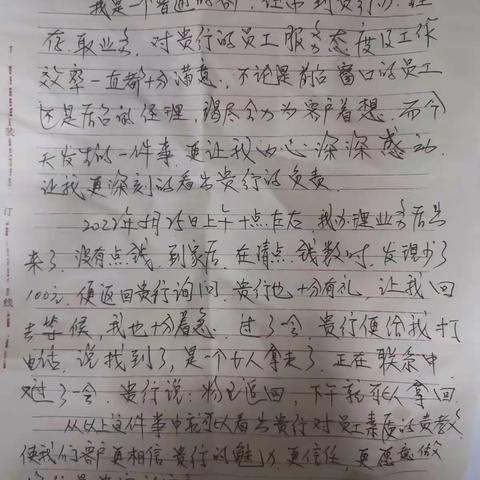 我是一个普通的客户，经常到贵行办理
存、取业务，对贵行的员工服务态度及工作
效率一直都十分满意，不论是前台窗口的员工
还是后台的经理，竭尽全力为客户着想，而今
天发生的一件事，更让我内心深深感动，
让我更深刻的看出贵行的负责.
2022年5月25日上午十点左右，我办理业务后出
来了，没有点钱，到家后，在清点钱数时，发现少了
100元，便返回贵行询问，贵行也十分有礼，让我回
去等候，我也十分着急，过了一会，贵行便给我打
电话，说找到了，是一个女人拿走了，正在联系中
又过了一会，贵行说：物已返回，下午本人拿回.
从以上这件事中看出贵行对员工素质的负责
使我们客户更相信贵行的魅力，更信任，更愿意做
装
订
线